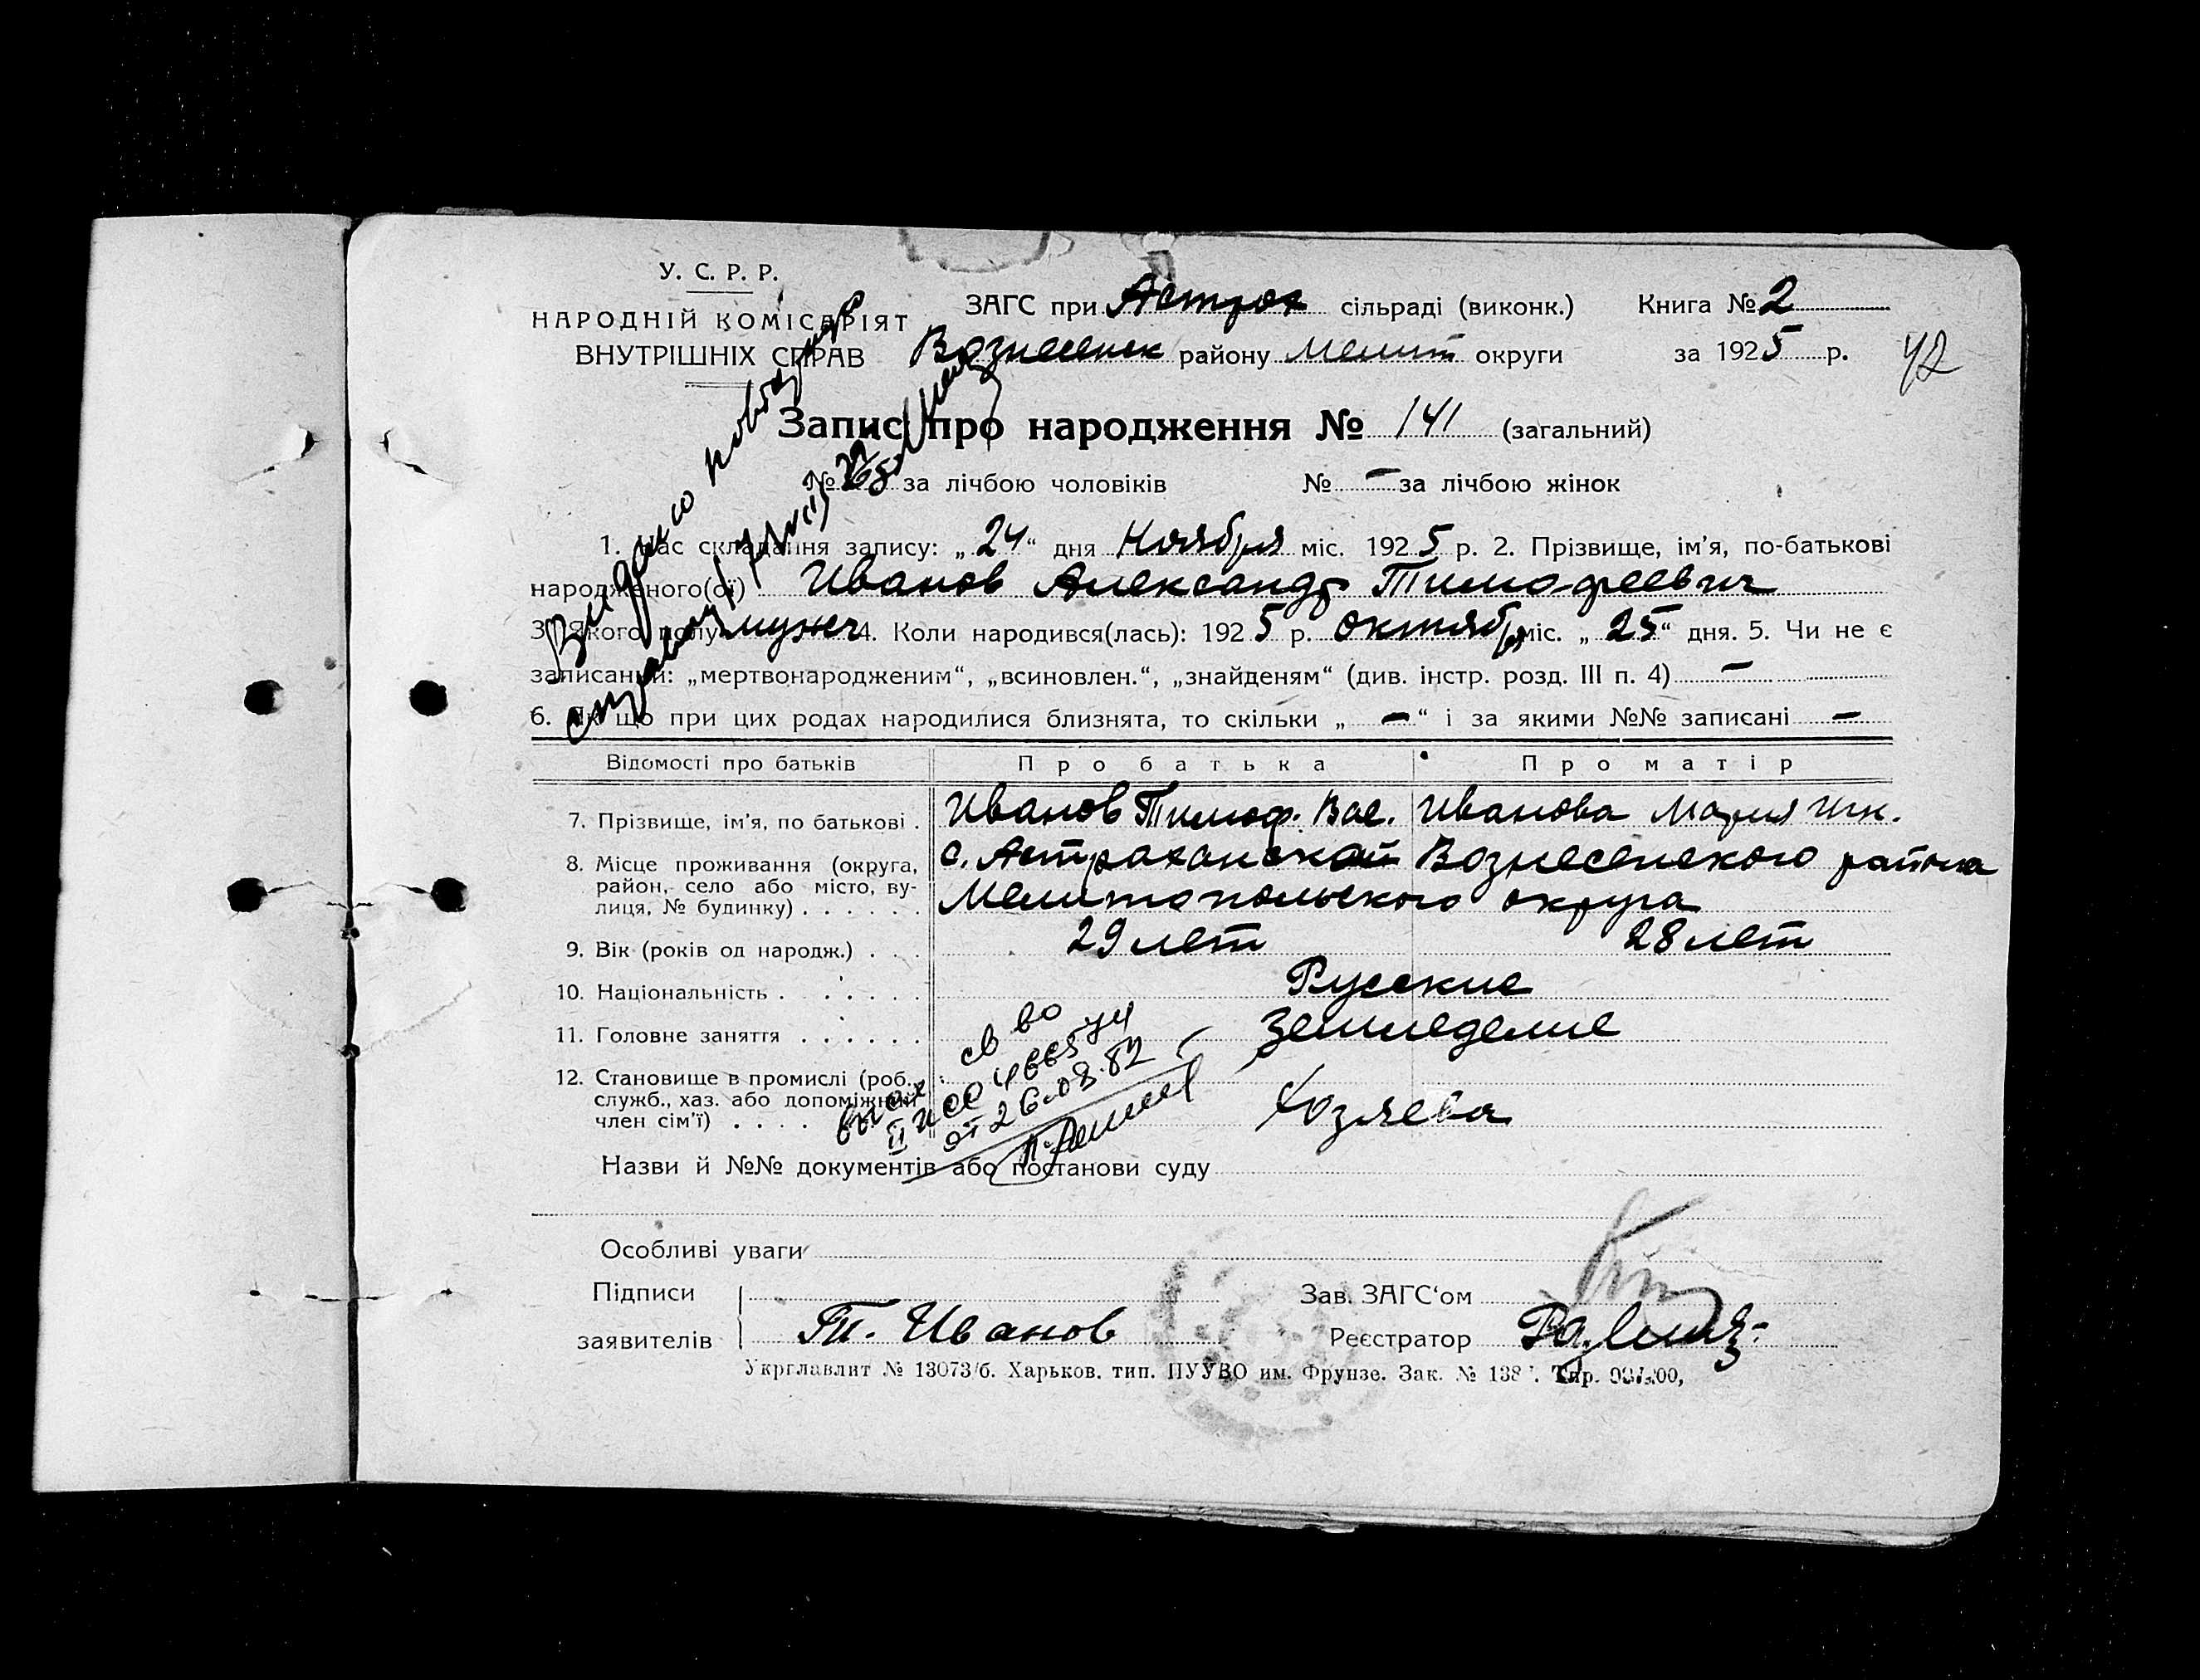 У. С. Р. Р.
НАРОДНІЙ КОМІСАРІЯТ
ВНУТРІШНІХ СПРАВ
ЗАГС при Астрах сільраді (виконк.) Книга № 2
Вознесенск району Мелит округи за 1925 р.
42
Запис про народження № 141 (загальний)
№ за лічбою чоловіків № – за лічбою жінок
1. Час складання запису: „24“ дня Ноября міс. 1925 р. 2. Прізвище, ім'я, по-батькові
народженого(ої) Иванов Александр Тимофеевич
3. Якого полу мужск 4. Коли народився(лась): 1925 р. октября міс. „25“ дня. 5. Чи не є
записаний: „мертвонародженим“, „всиновлен.“, „знайденям“ (див. інстр. розд. III п. 4) –
6. Як що при цих родах народилися близнята, то скільки „–“ і за якими №№ записані –
Видано
Відомості про батьків Про батька Про матір
7. Прізвище, ім'я, по батькові . Иванов Тимоф. Вас. Иванова Мария Ник.
8. Місце проживання (округа, с. Астраханской Вознесенского района
район, село або місто, ву-
лиця, № будинку) . . . . . . Мелитопольского округа
9. Вік (років од народж.) . . . 29 лет 28 лет
10. Національність . . . . . . Русские
11. Головне заняття . . . . . . Земледелие
12. Становище в промислі (роб.,
служб., хаз. або допоміжний
член сім'ї) . . . . Хозяева
св во
от 26.08.82
Назви й №№ документів або постанови суду
Особливі уваги
Підписи
заявителів Т. Иванов
Зав. ЗАГС‘ом
Реєстратор
Укрглавлит № 13073/б. Харьков. тип. ПУУВО им. Фрунзе. Зак. №